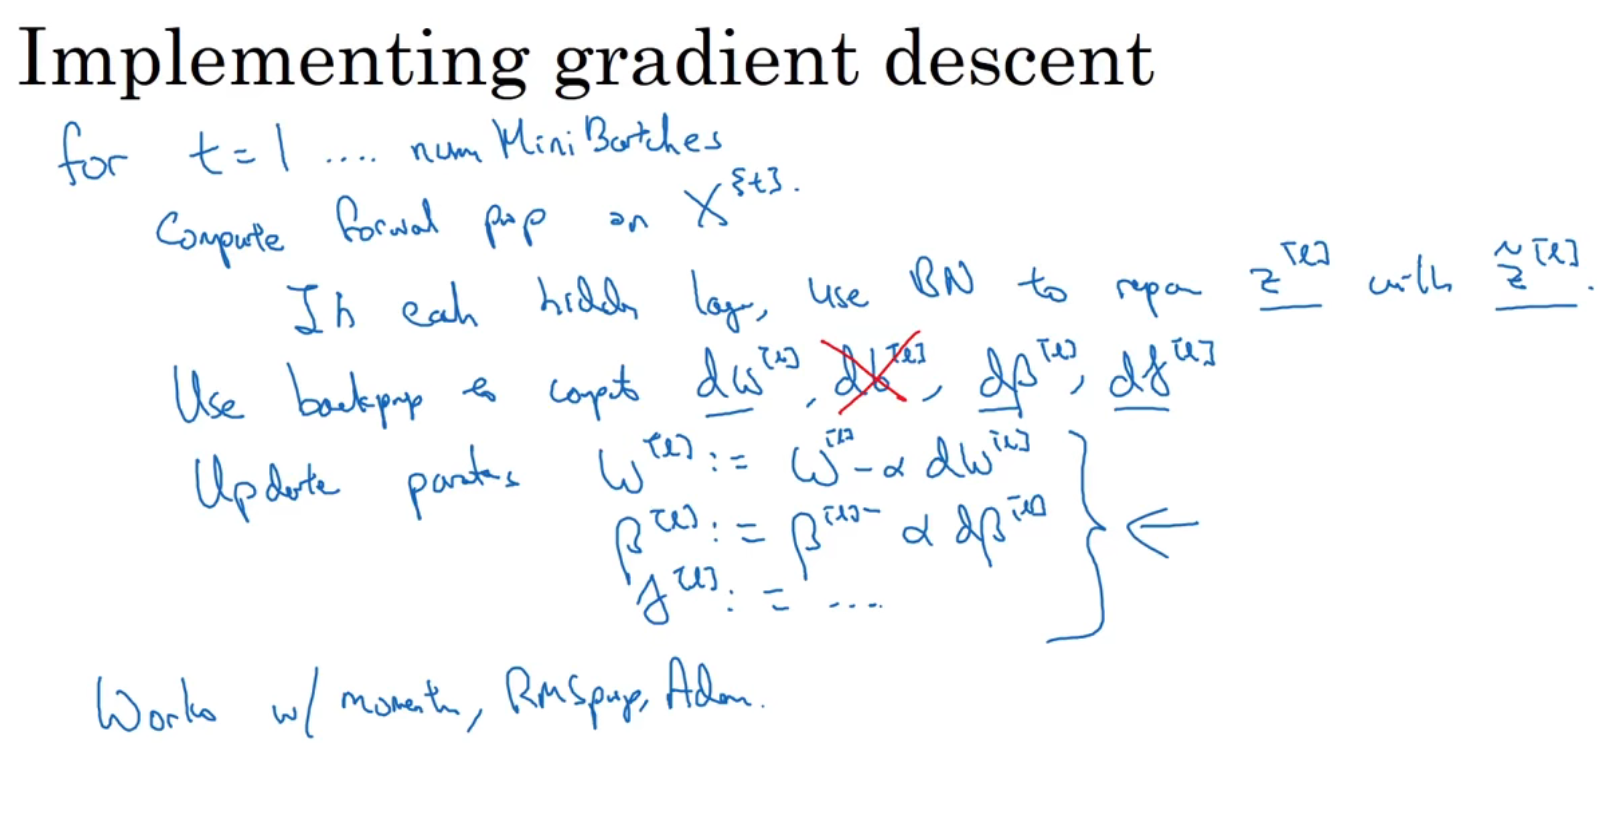 Implementing gradient descent
for t = 1 .... num Mini Batches
Compute forward prop on X^{t}.
In each hidden layer, use BN to replace z^[l] with z̃^[l].
Use backprop to compute dw^[l], db^[l], dβ^[l], dγ^[l]
Update parameters W^[l] := W^[l] - α dw^[l]
β^[l] := β^[l] - α dβ^[l]
γ^[l] := ....
Works w/ momentum, RMSprop, Adam.